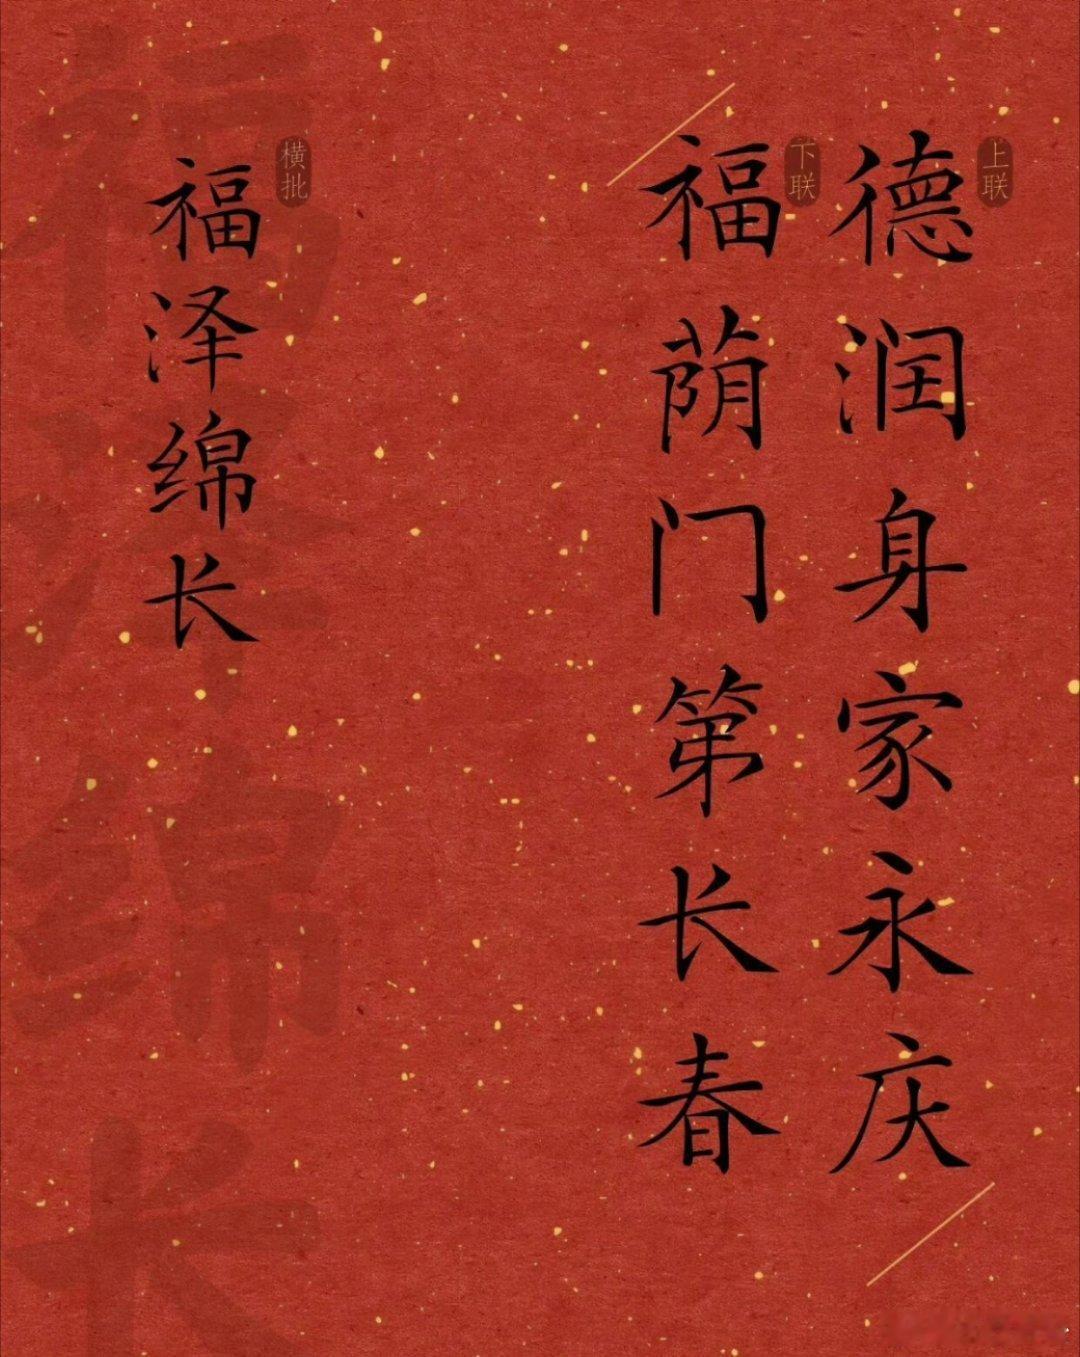 上联
德润身家永庆
下联
福荫门第长春
横批
福泽绵长
福泽绵长